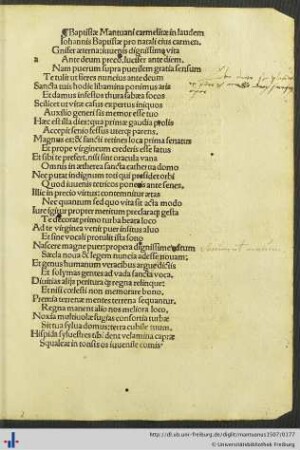 Baptistæ Mantuani carmelitæ in laudem
Iohannis Baptistæ pro natali eius carmen.
dignissima vita
a Ante deum preco, lucifer ante diem,
Nam puerum supra puerilem gratia sensum
Te tulit ut fieres nuncius ante deum
Sancta tuis hodie libamina ponimus aris
Et damus infectos thura sabæa focos
Scilicet ut vitæ casus expertus iniquos
Auxilio generi sit memor esse tuo
Hæc est illa dies: qua primæ gaudia
Accepit senio fessus uterq; parens,
Magnus es: & sancti retines loca prima senatus
Et prope virgineum crederis esse latus
Et sibi te prefert, nisi sint oracula vana
Omnis in ætherea sancta catherua domo
Nec putat indignum toti qui presidet orbi
Quod iuuenis tetricos ponens ante senes,
Illic in precio virtus: contemnitur ætas
Nec quantum sed quo vita sit acta modo
Iure igitur propter meritum præclaraq; gesta
Te decorat primo turba beata loco
Ad te virginea venit puer insitus aluo
Et sine vocali protulit ista sono
Nascere magne puer: propera dignissime
Sæcla noua & legem nuncia adesse nouam;
Et genus humanum veracibus argue dictis
Et solymas gentes ad vada sancta voca,
Diuinas alij peritura q; regna relinquet:
Et nisi cœlesti non memorare bono,
Prensa terrenæ mentes terrena sequantur,
Regna manent alio nos meliora loco,
Noxia mellifluæ fugias consortia turbæ
Sit tua sylua domus: terra cubile tuum,
Hispida syluestres tibi dent velamina capræ
Squaleat in tonsis
http://dl.ub.uni-freiburg.de/diglit/mantuanus1507/0177
© Universitätsbibliothek Freiburg